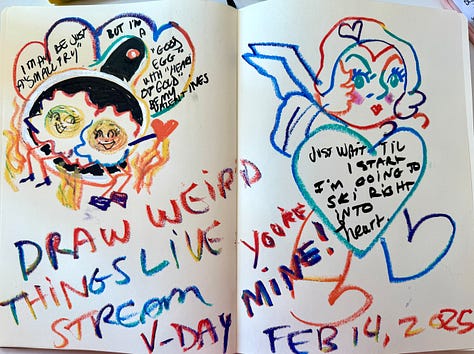 I MAY BE JUST
A "SMALL FRY"
BUT I'M
A
"GOOD
EGG"
WITH A "HEART
OF GOLD"
BE MY
VALENTINES
DRAW WEIRD
THINGS LIVE
STREAM
V-DAY
JUST WAIT 'TIL
I START
I'M GOING TO
SKI RIGHT
INTO
heart
YOU'RE
MINE!
FEB 14, 2025